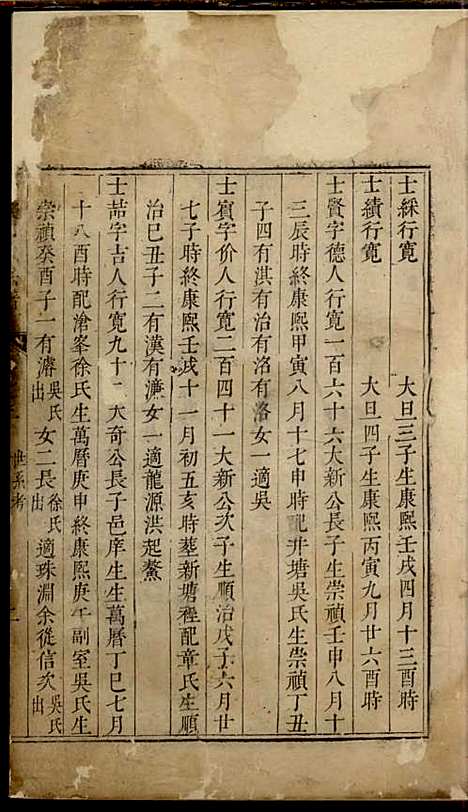 士綵行寬 大旦三子生康熙壬戌四月十三酉時
士績行寬 大旦四子生康熙丙寅九月廿六酉時
士賢字德人行寬一百六十六大新公長子生崇禎壬申八月十
三辰時終康熙甲寅八月十七申時配井塘吳氏生崇禎丁丑
子四有淇有治有洛有洛女一適吳
士賓字价人行寬二百四十一大新公次子生順治戊子六月廿
七子時終康熙壬戌十一月初五亥時葬新塘裡配章氏生順
治己丑子二有漢有濂女一適龍源洪起鰲
士喆字吉人行寬九十二大奇公長子邑庠生生萬曆丁巳七月
十八酉時配滄峯徐氏生萬曆庚申終康熙庚午副室吳氏生
崇禎癸酉子一有濬吳氏出女二長徐氏出適珠淵余從信次吳氏出
世系考